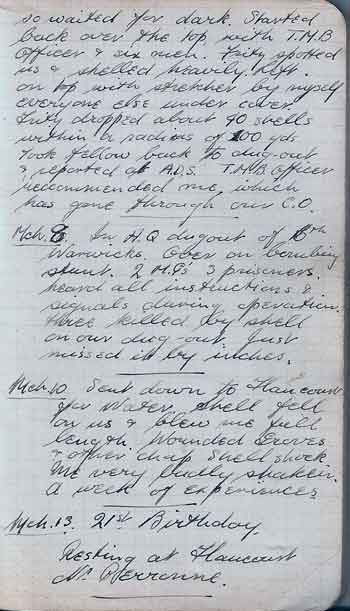 so waited for dark. Started
back over the top with T.M.B
Officer & six men. Fritz spotted
us & shelled heavily. Left
on top with stretcher by myself
everyone else under cover.
Fritz dropped about 90 shells
within a radius of 100 yds.
Took fellow back to dug-out
& reported at A.D.S. T.M.B. Officer
recommended me, which
has gone through our C.O.
Mch. 8. In H.Q dugout of 6th
Warwicks. Over on bombing
stunt. 2 M.Gs 3 prisoners.
heard all instructions &
signals during operation.
three killed by shell
on our dug-out. Just
missed it by inches.
Mch. 10 Sent down to Hancourt
for Water. Shell fell
on us & blew me full
length. Wounded Graves
& other chap shell shock
me very badly shaken.
A week of experiences
Mch. 13. 21st Birthday.
Resting at Hancourt
Nr. Perronne.